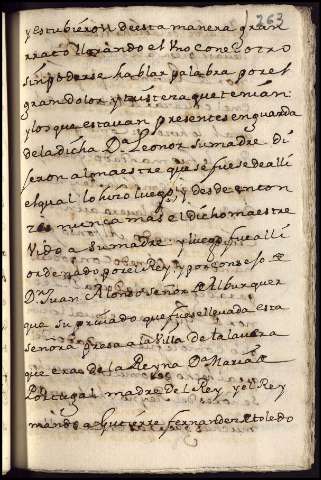 263
y estubieron de esta manera gran
rrato llorando el Uno con el otro
sin poderse hablar palabra por el
gran dolor y tristeza que tenian:
y los que estavan presentes en guarda
de la dicha Dª Leonor su madre di
jeron al maestre que se fuese de alli
el qual lo hizo luego y desde enton
zes nunca mas el dicho maestre
Vido a su madre y luego fue alli
ordenado por el Rey y por consejo de
Dn Juan Alonso señor de Alburquer
que su privado que fuese llevada esta
señora presa a la Villa de talavera
que era de la Reyna Dª Maria de
Portugal madre del Rey y el Rey
mando a Gutierre fernandez de toledo